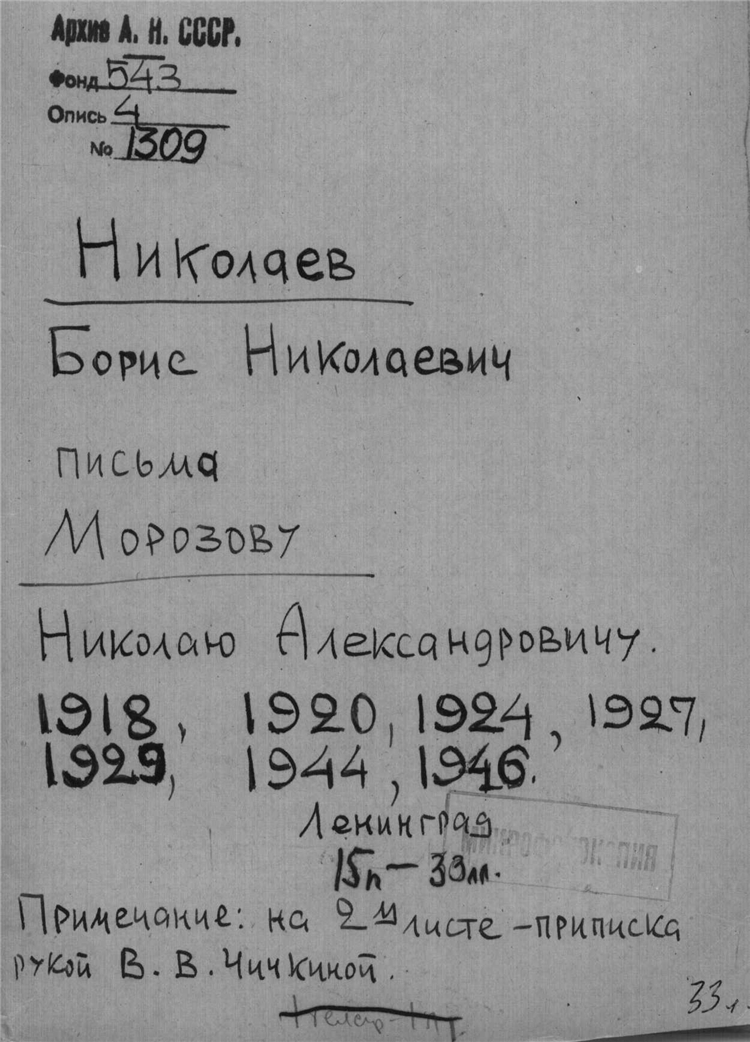 Архив А. Н. СССР.
Фонд 543
Опись 4
№ 1309
Николаев
Борис Николаевич
письма
Морозову
Николаю Александровичу.
1918, 1920, 1924, 1927,
1929, 1944, 1946.
Ленинград
15п – 33лл.
Примечание: на 2м листе – приписка
рукой В. В. Чичкиной.
33л.